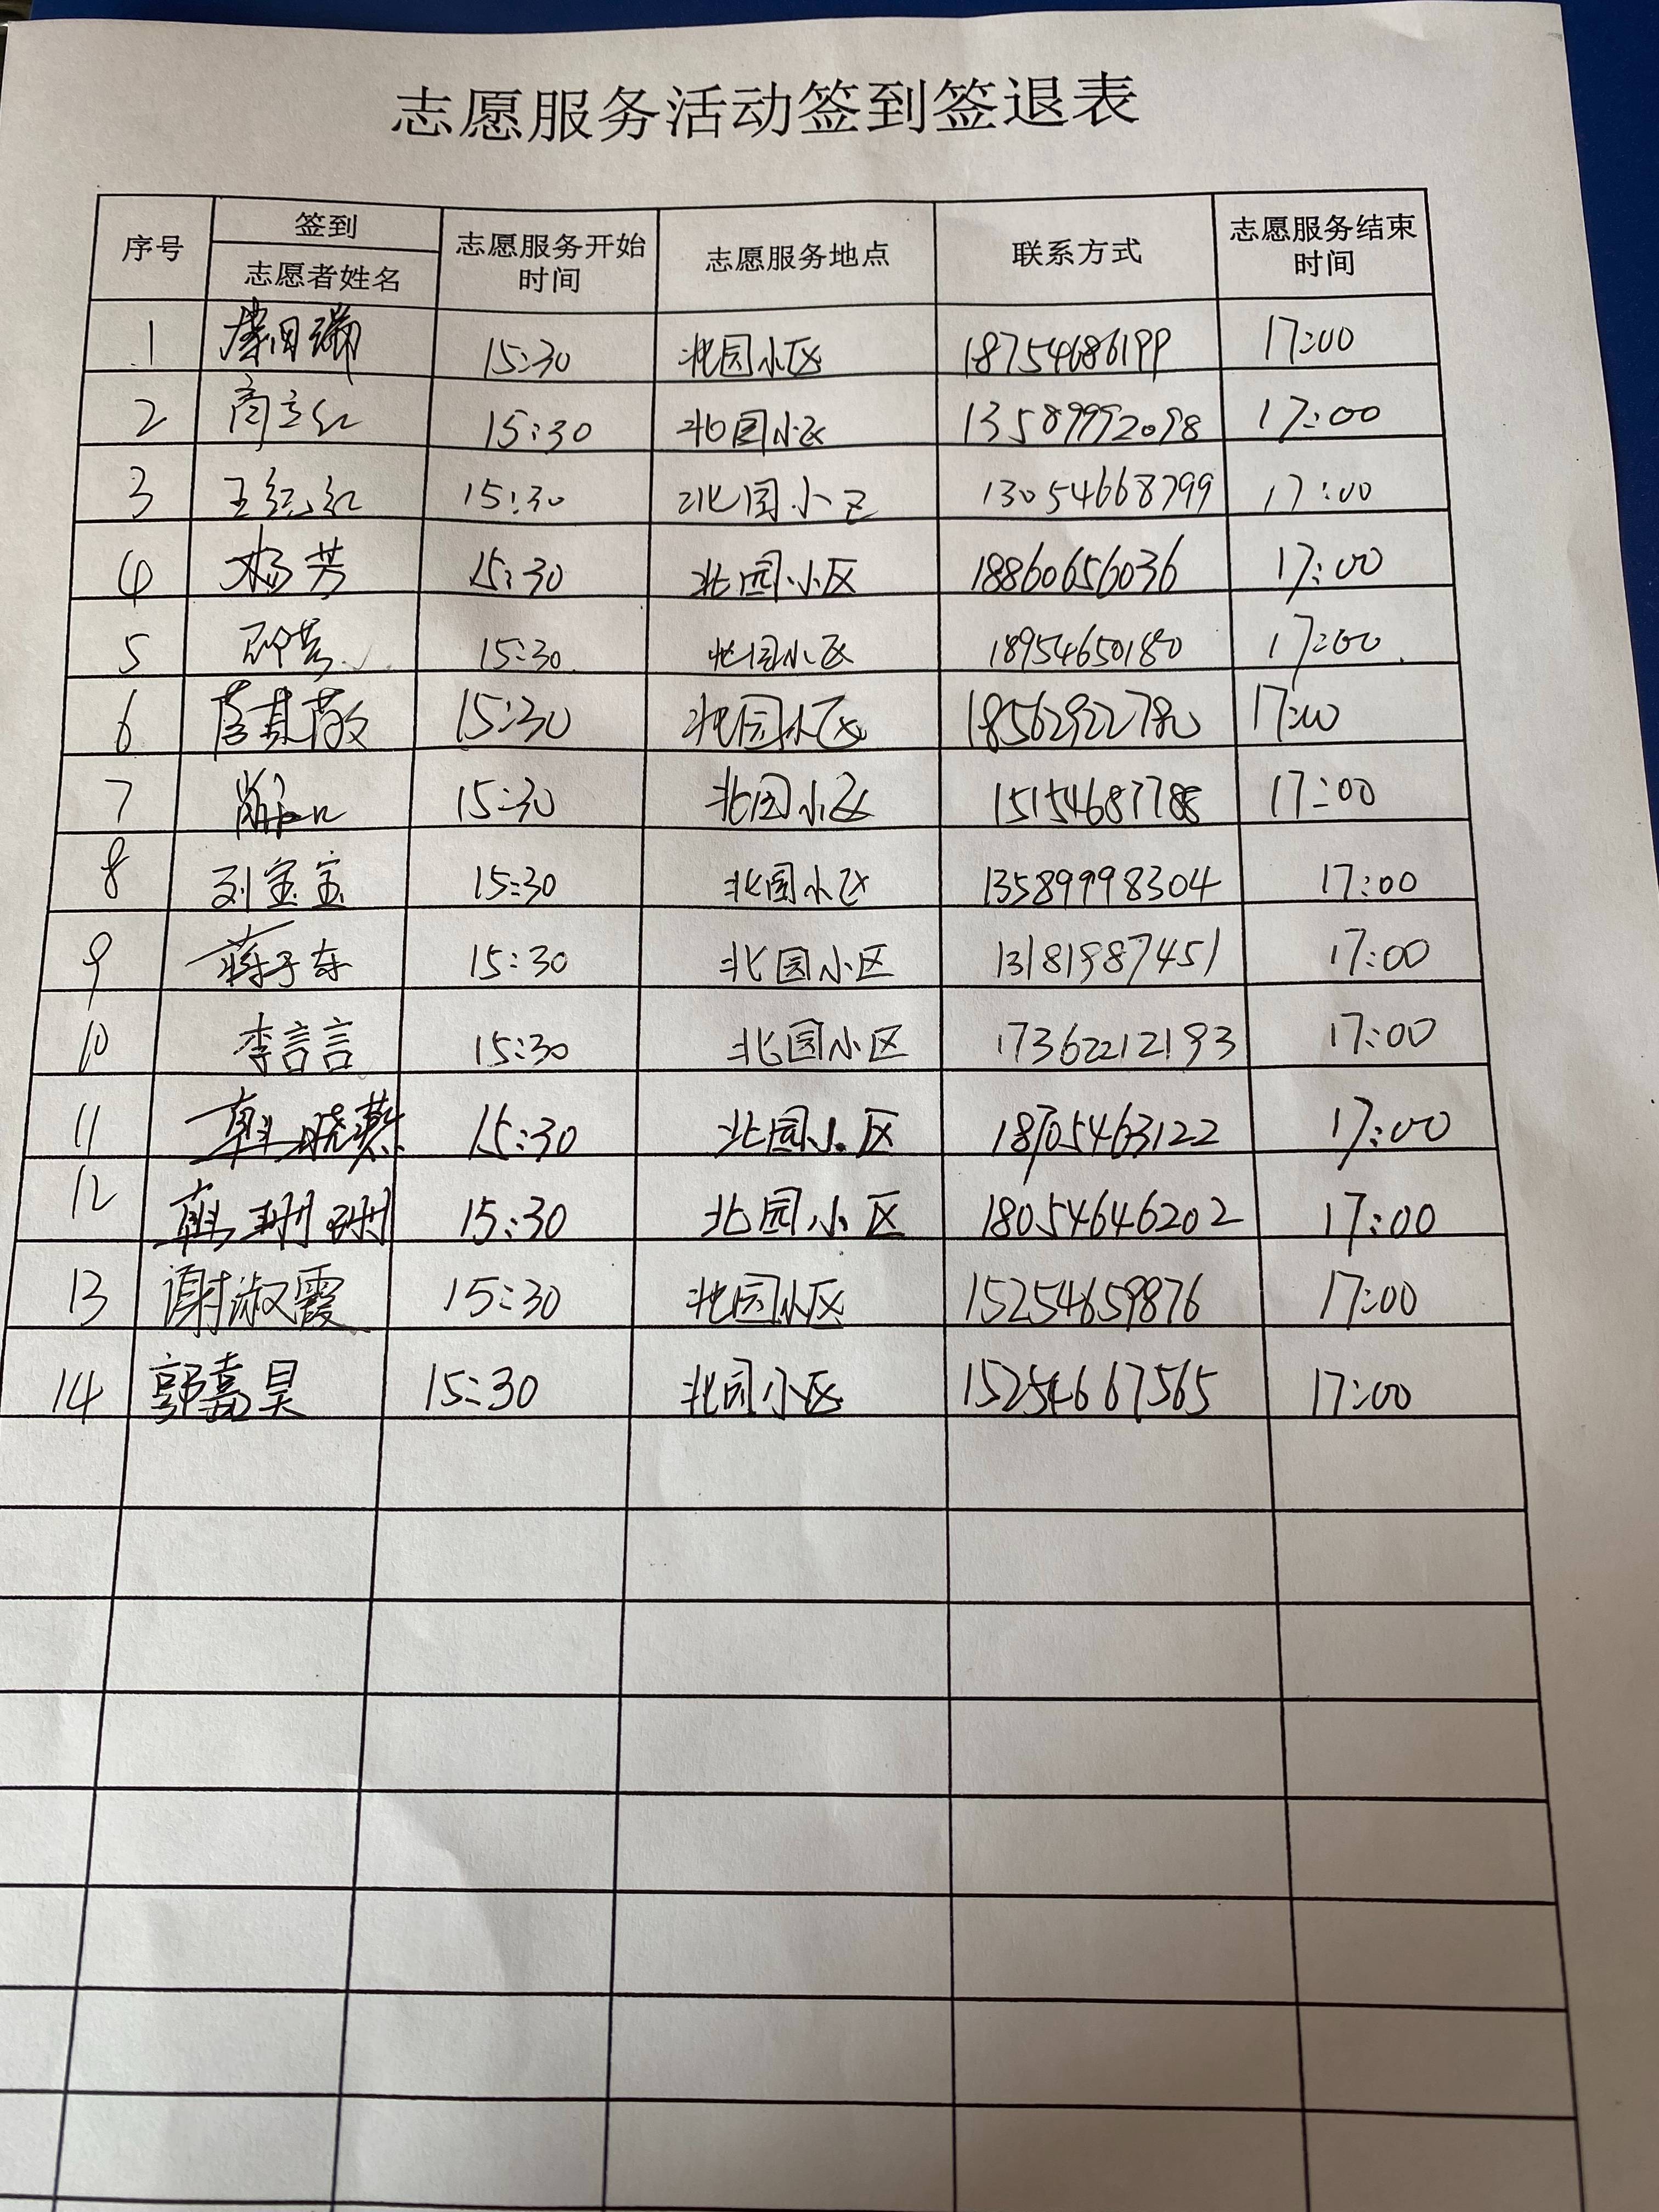 志愿服务活动签到签退表
序号 签到 志愿者姓名 志愿服务开始时间 志愿服务地点 联系方式 志愿服务结束时间
1 15:30 北园小区 18754686199 17:00
2 商立红 15:30 北园小区 13589992098 17:00
3 王红红 15:30 北园小区 13054668799 17:00
4 杨芳 15:30 北园小区 18860656036 17:00
5 15:30 北园小区 18954650180 17:00
6 15:30 北园小区 18562922780 17:00
7 15:30 北园小区 15154687788 17:00
8 刘宝宝 15:30 北园小区 13589998304 17:00
9 蒋子东 15:30 北园小区 13181987451 17:00
10 李言言 15:30 北园小区 17362212193 17:00
11 韩晓燕 15:30 北园小区 18705463122 17:00
12 韩珊珊 15:30 北园小区 18054646202 17:00
13 谢淑霞 15:30 北园小区 15254659876 17:00
14 郭嘉昊 15:30 北园小区 15254667565 17:00